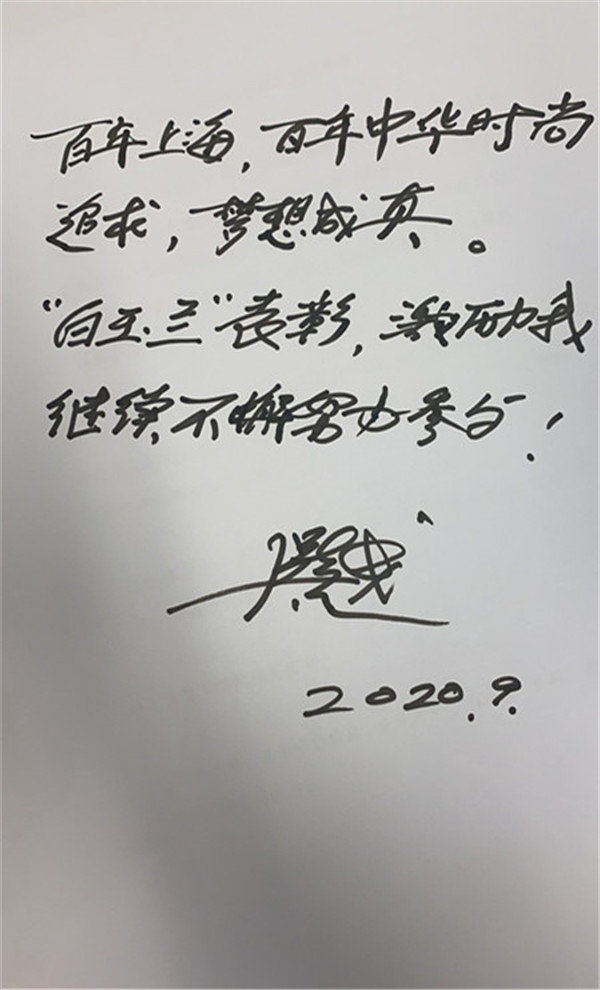 百年上海，百年中华时尚
追求，梦想成真。
“白玉兰”表彰，激励我
继续不懈努力奋斗！
2020.9.